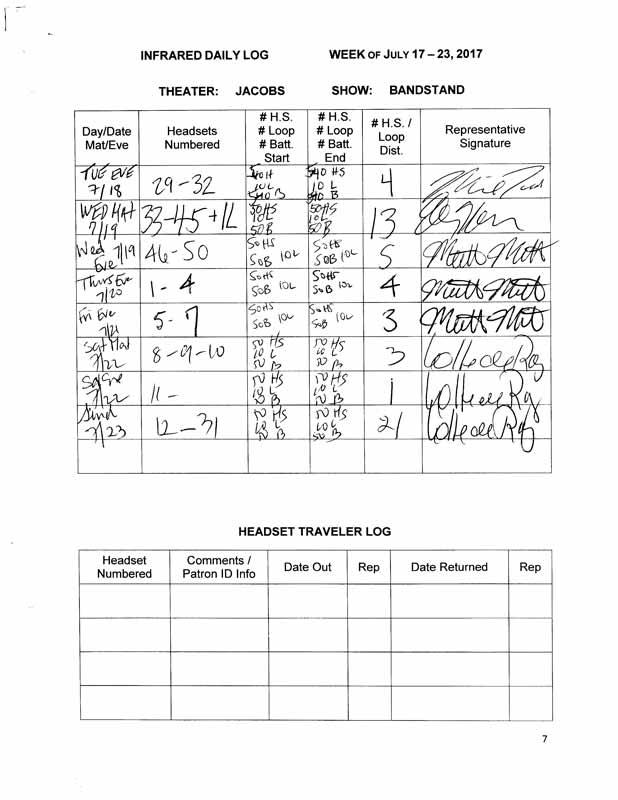 INFRARED DAILY LOG WEEK OF JULY 17 – 23, 2017
THEATER: JACOBS SHOW: BANDSTAND
Day/Date Mat/Eve Headsets Numbered # H.S. # Loop # Batt. Start # H.S. # Loop # Batt. End # H.S. / Loop Dist. Representative Signature
TUE EVE 7/18 29-32 10 L 50 HS 10 L 4
WED MAT 7/19 33-45+1L 50HS 10L 50B 50HS 10L 50B 13
Wed 7/19 Eve 46-50 50HS 50B 10L 50HS 50B 10L 5 Matt
Thurs Eve 7/20 1-4 50HS 50B 10L 50HS 50B 10L 4 Matt
Fri Eve 7/21 5-7 50HS 50B 10L 50HS 50B 10L 3 Matt
Sat Mat 7/22 8-9-10 50 HS 10 L 50 B 50 HS 10 L 50 B 3
Sat Eve 7/22 11- 50 HS 10 L 50 B 50 HS 10 L 50 B 1
7/23 12-31 50 HS 10 L 50 B 50 HS 10 L 50 B 21
HEADSET TRAVELER LOG
Headset Numbered Comments / Patron ID Info Date Out Rep Date Returned Rep
7